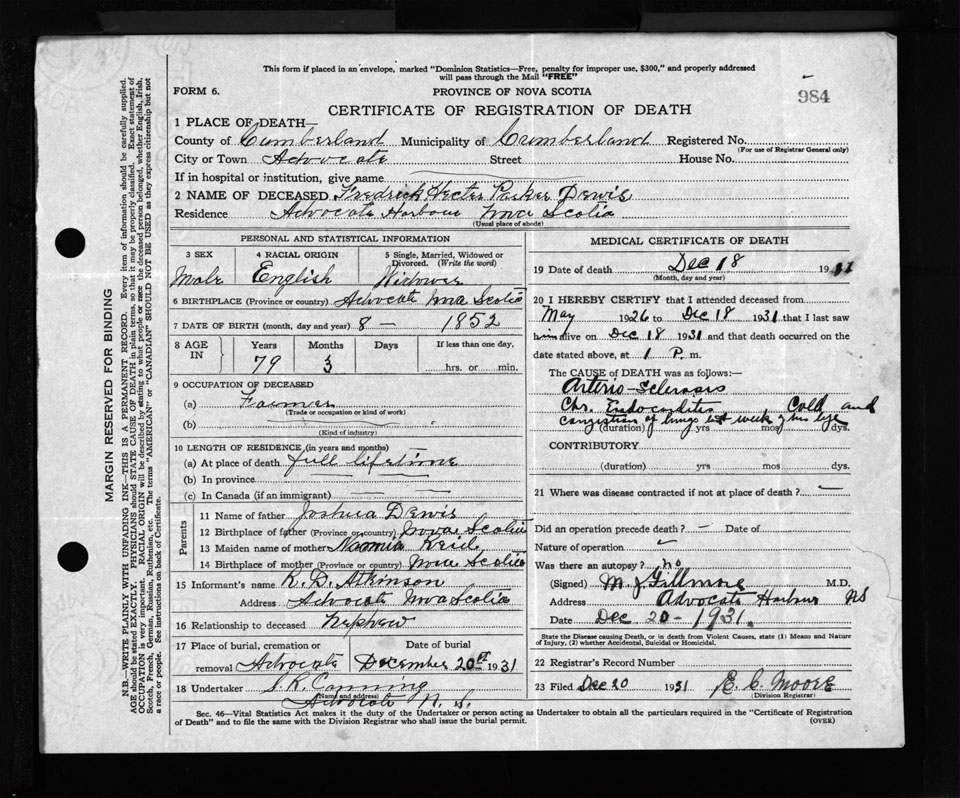 This form if placed in an envelope, marked "Dominion Statistics—Free, penalty for improper use, $300," and properly addressed
will pass through the Mail "FREE"
FORM 6.
PROVINCE OF NOVA SCOTIA
984
CERTIFICATE OF REGISTRATION OF DEATH
1 PLACE OF DEATH—
County of Cumberland Municipality of Cumberland Registered No.
(For use of Registrar General only)
City or Town Advocate Street House No.
If in hospital or institution, give name
2 NAME OF DECEASED Fredrick Hector Parker Dewis
Residence Advocate Harbour Nova Scotia
(Usual place of abode)
PERSONAL AND STATISTICAL INFORMATION
3 SEX 4 RACIAL ORIGIN 5 Single, Married, Widowed or
Divorced. (Write the word)
Male English Widower
6 BIRTHPLACE (Province or country) Advocate Nova Scotia
7 DATE OF BIRTH (month, day and year) 8 — 1852
8 AGE IN Years Months Days If less than one day,
79 3 hrs. or min.
9 OCCUPATION OF DECEASED
(a) Farmer
(Trade or occupation or kind of work)
(b)
(Kind of industry)
10 LENGTH OF RESIDENCE (in years and months)
(a) At place of death full lifetime
(b) In province
(c) In Canada (if an immigrant)
Parents
11 Name of father Joshua Dewis
12 Birthplace of father (Province or country) Nova Scotia
13 Maiden name of mother Reid
14 Birthplace of mother (Province or country) Nova Scotia
15 Informant's name R. D. Atkinson
Address Advocate Nova Scotia
16 Relationship to deceased Nephew
17 Place of burial, cremation or Date of burial
removal Advocate December 20th 1931
18 Undertaker S. R. Canning
(Name and address)
Advocate N. S.
MEDICAL CERTIFICATE OF DEATH
19 Date of death Dec 18 1931
(Month, day and year)
20 I HEREBY CERTIFY that I attended deceased from
May 1926 to Dec 18 1931 that I last saw
him alive on Dec 18 1931 and that death occurred on the
date stated above, at 1 P. m.
The CAUSE OF DEATH was as follows:—
Arterio-Sclerosis
Chr. Endocarditis Cold and
congestion of lungs last week of his life
(duration) yrs mos dys.
CONTRIBUTORY
(duration) yrs mos dys.
21 Where was disease contracted if not at place of death? —
Did an operation precede death? — Date of
Nature of operation —
Was there an autopsy? no
(Signed) M. J. Gillmore M.D.
Address Advocate Harbour NS
Date Dec 20 - 1931.
State the Disease causing Death, or in death from Violent Causes, state (1) Means and Nature
of Injury, (2) whether Accidental, Suicidal or Homicidal.
22 Registrar's Record Number
23 Filed Dec 20 1931 E. C. Moore
(Division Registrar)
Sec. 46—Vital Statistics Act makes it the duty of the Undertaker or person acting as Undertaker to obtain all the particulars required in the "Certificate of Registration
of Death" and to file the same with the Division Registrar who shall issue the burial permit.
(OVER)
MARGIN RESERVED FOR BINDING
N.B.—WRITE PLAINLY WITH UNFADING INK—THIS IS A PERMANENT RECORD. Every item of information should be carefully supplied.
AGE should be stated EXACTLY. PHYSICIANS should STATE CAUSE OF DEATH in plain terms, so that it may be properly classified. Exact statement of
OCCUPATION is very important. RACIAL ORIGIN will be described by stating to what people or race the deceased person belonged, whether English, Irish,
Scotch, French, German, Russian, Ruthenian, etc. The terms "AMERICAN" or "CANADIAN" SHOULD NOT BE USED as they express citizenship but not
a race or people. See instructions on back of Certificate.